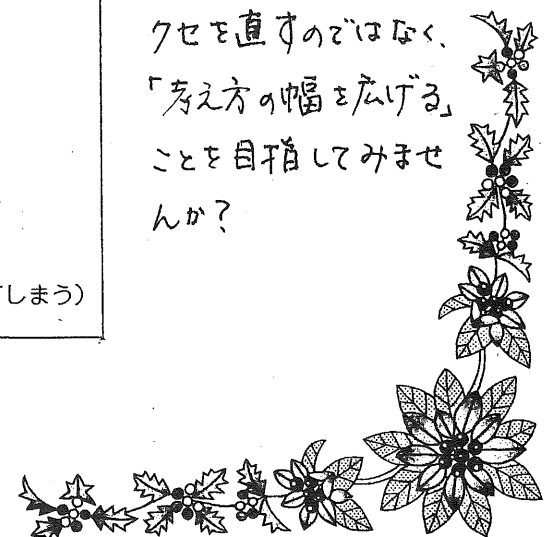 クセを直すのではなく、
「考え方の幅を広げる」
ことを目指してみませ
んか？
しまう）